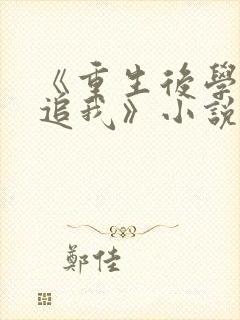 《重生後學
追我》小說
鄭佳